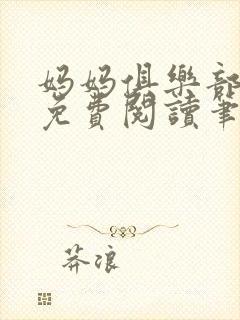 妈妈俱樂部
免費閱讀筆
莽浪